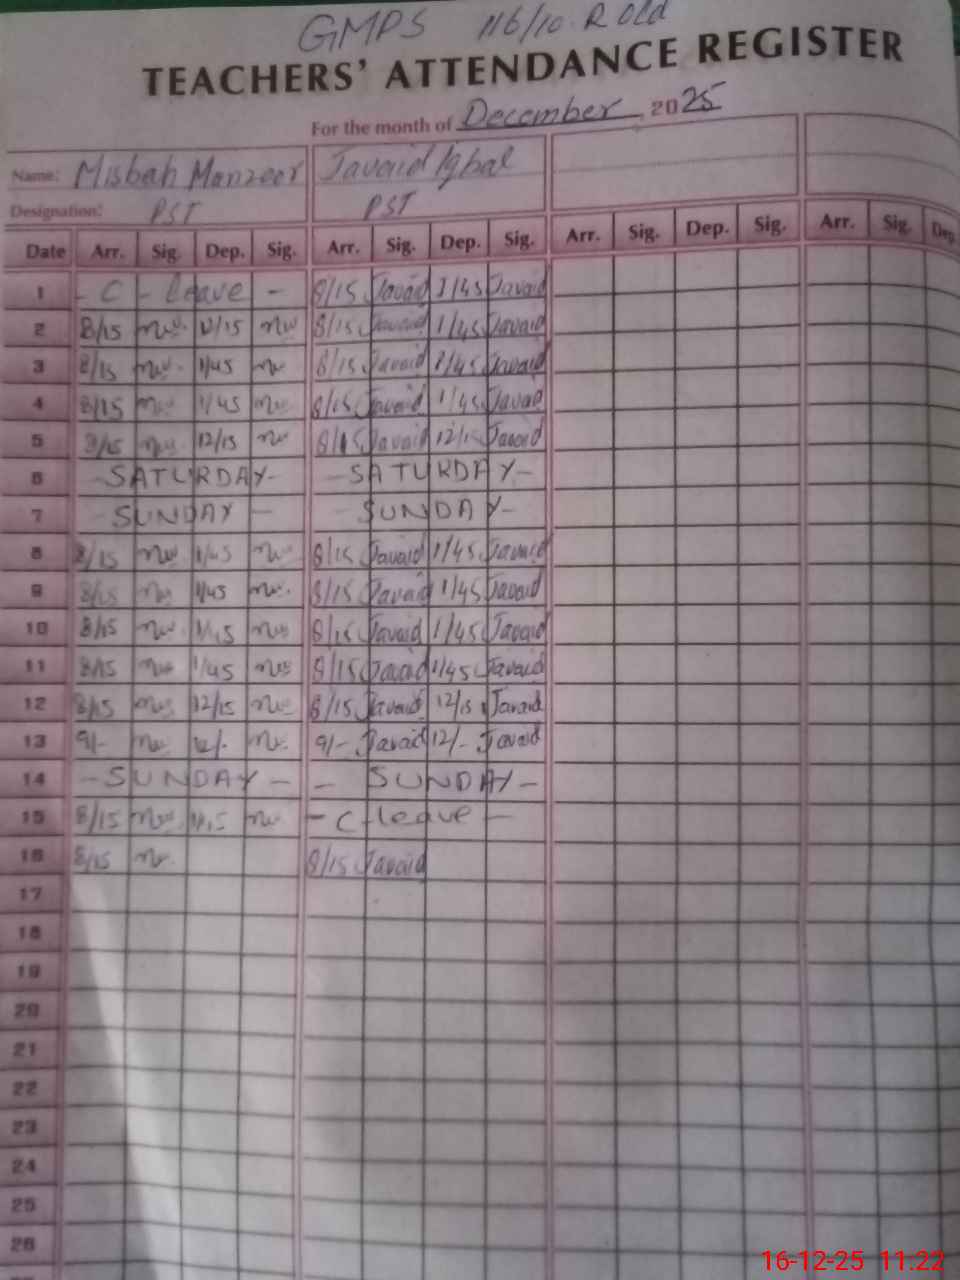 GMPS 116/10.R Old
TEACHERS' ATTENDANCE REGISTER
For the month of December, 2025
Name: Misbah Manzoor Javaid Iqbal
Designation: PST PST
Date Arr. Sig. Dep. Sig. Arr. Sig. Dep. Sig. Arr. Sig. Dep. Sig. Arr. Sig. Dep.
1 - C - leave - 8/15 Javaid 1/45 Javaid
2 8/15 8/15 Javaid 1/45 Javaid
3 8/15 1/45 8/15 Javaid 1/45 Javaid
4 8/15 1/45 8/15 Javaid 1/45 Javaid
5 8/15 12/15 8/15 Javaid 12/15 Javaid
6 - SATURDAY - - SATURDAY -
7 - SUNDAY - SUNDAY -
8 8/15 1/45 8/15 Javaid 1/45 Javaid
9 8/15 1/45 8/15 Javaid 1/45 Javaid
10 8/15 8/15 Javaid 1/45 Javaid
11 8/15 1/45 8/15 Javaid 1/45 Javaid
12 8/15 12/15 8/15 Javaid 12/15 Javaid
13 9/- 12/- 9/- Javaid 12/- Javaid
14 - SUNDAY - - SUNDAY -
15 8/15 - C - leave -
16 8/15 8/15 Javaid
17
18
19
20
21
22
23
24
25
26
16-12-25 11:22